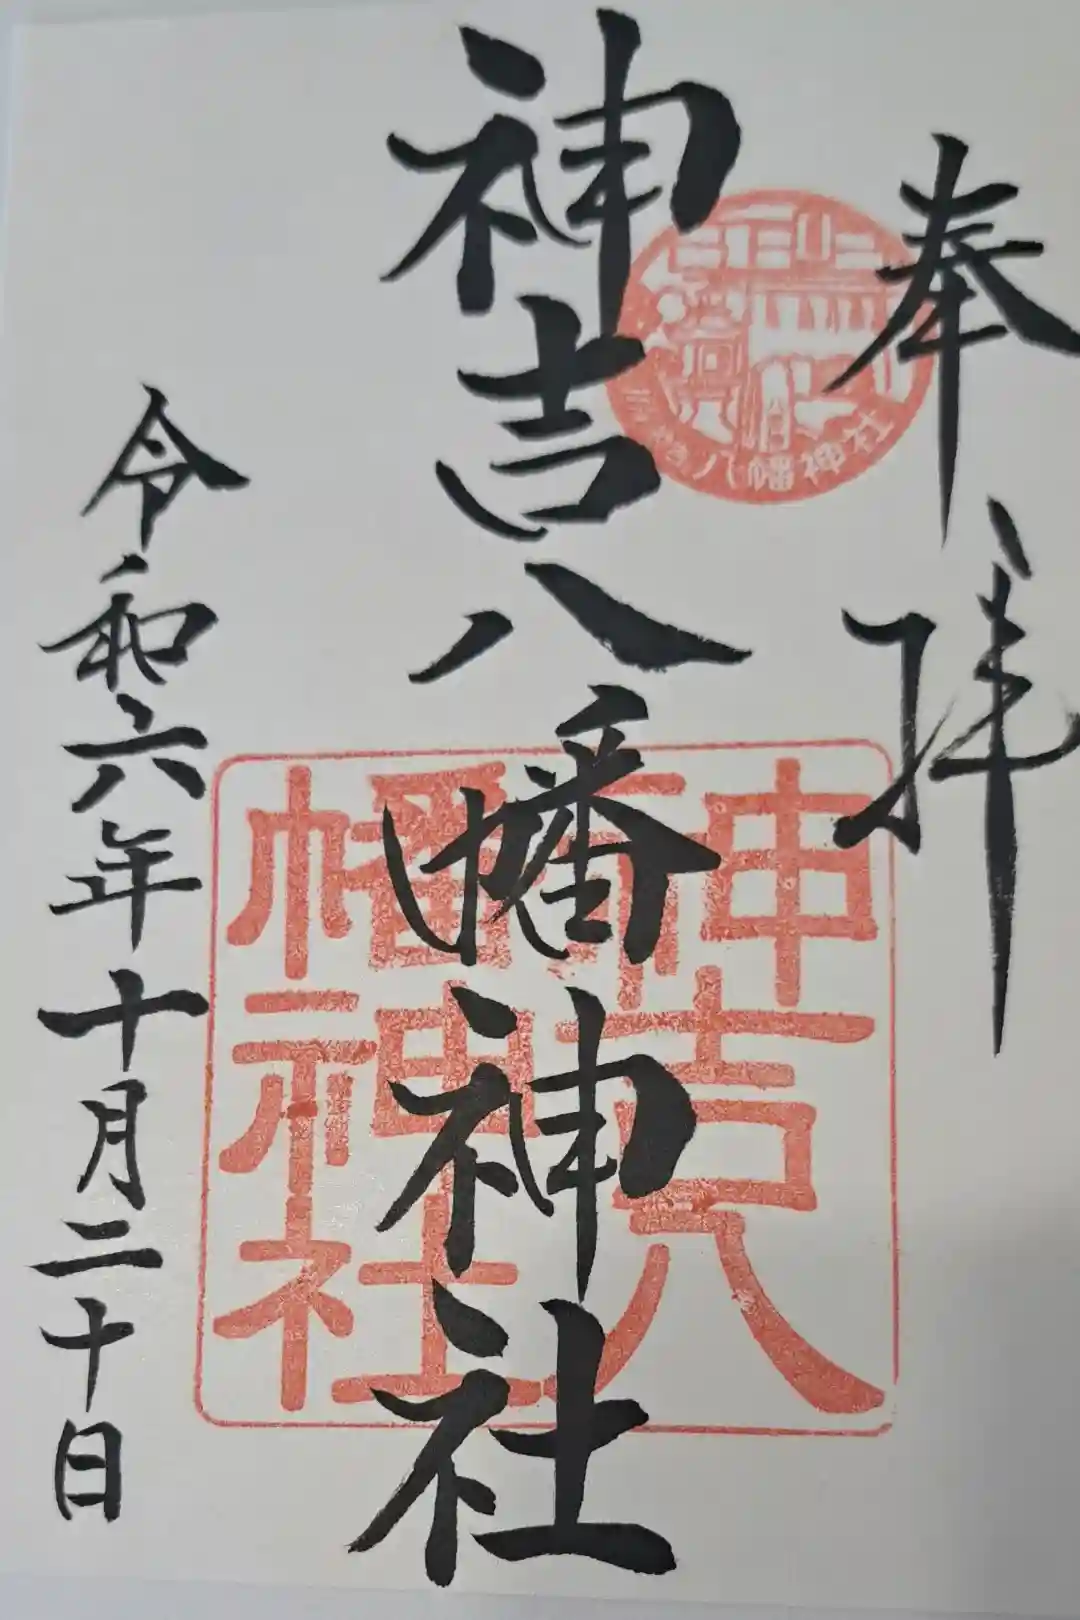 奉拝
神吉八幡神社
神吉八
幡神社
八幡神社
令和六年十月二十日